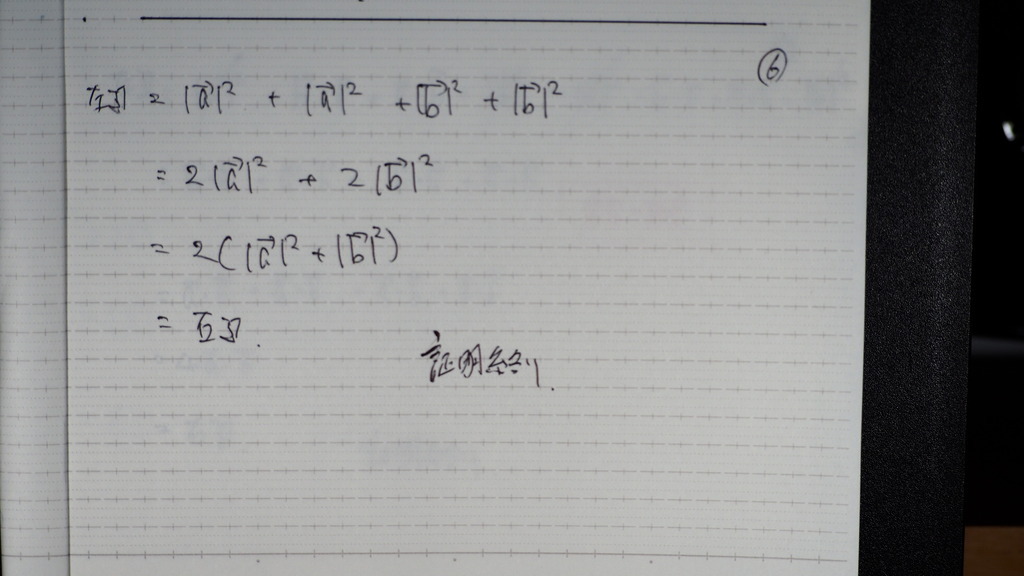 ⑥
左辺 = |a⃗|² + |a⃗|² + |b⃗|² + |b⃗|²
= 2|a⃗|² + 2|b⃗|²
= 2(|a⃗|² + |b⃗|²)
= 右辺.
証明終り.